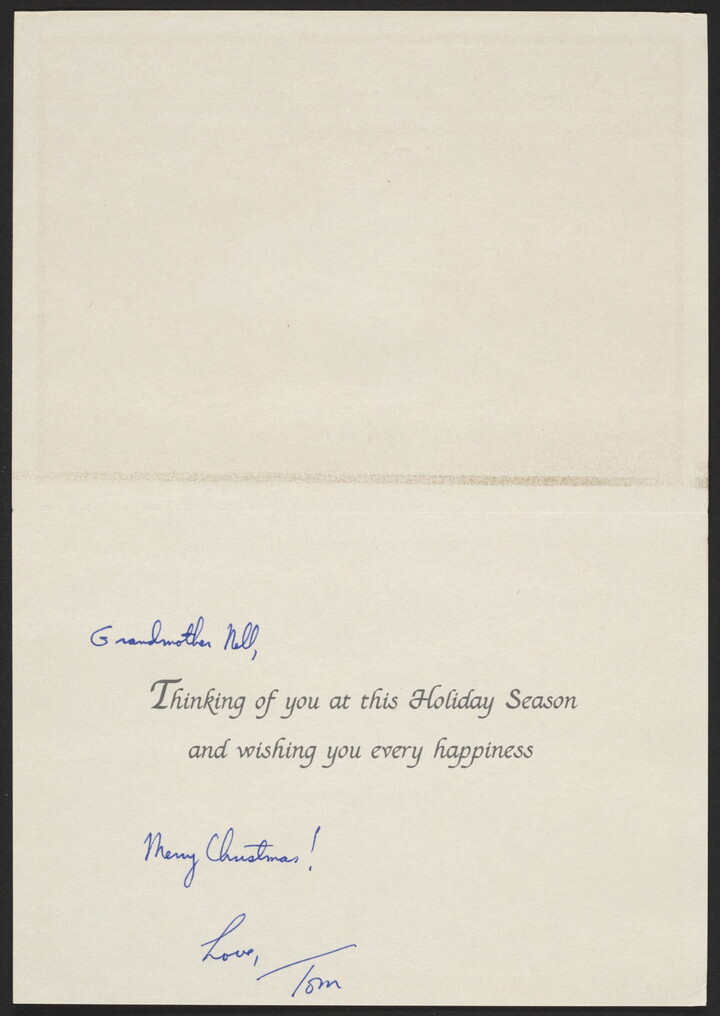 Grandmother Nell,
Thinking of you at this Holiday Season
and wishing you every happiness
Merry Christmas!
Love,
Tom